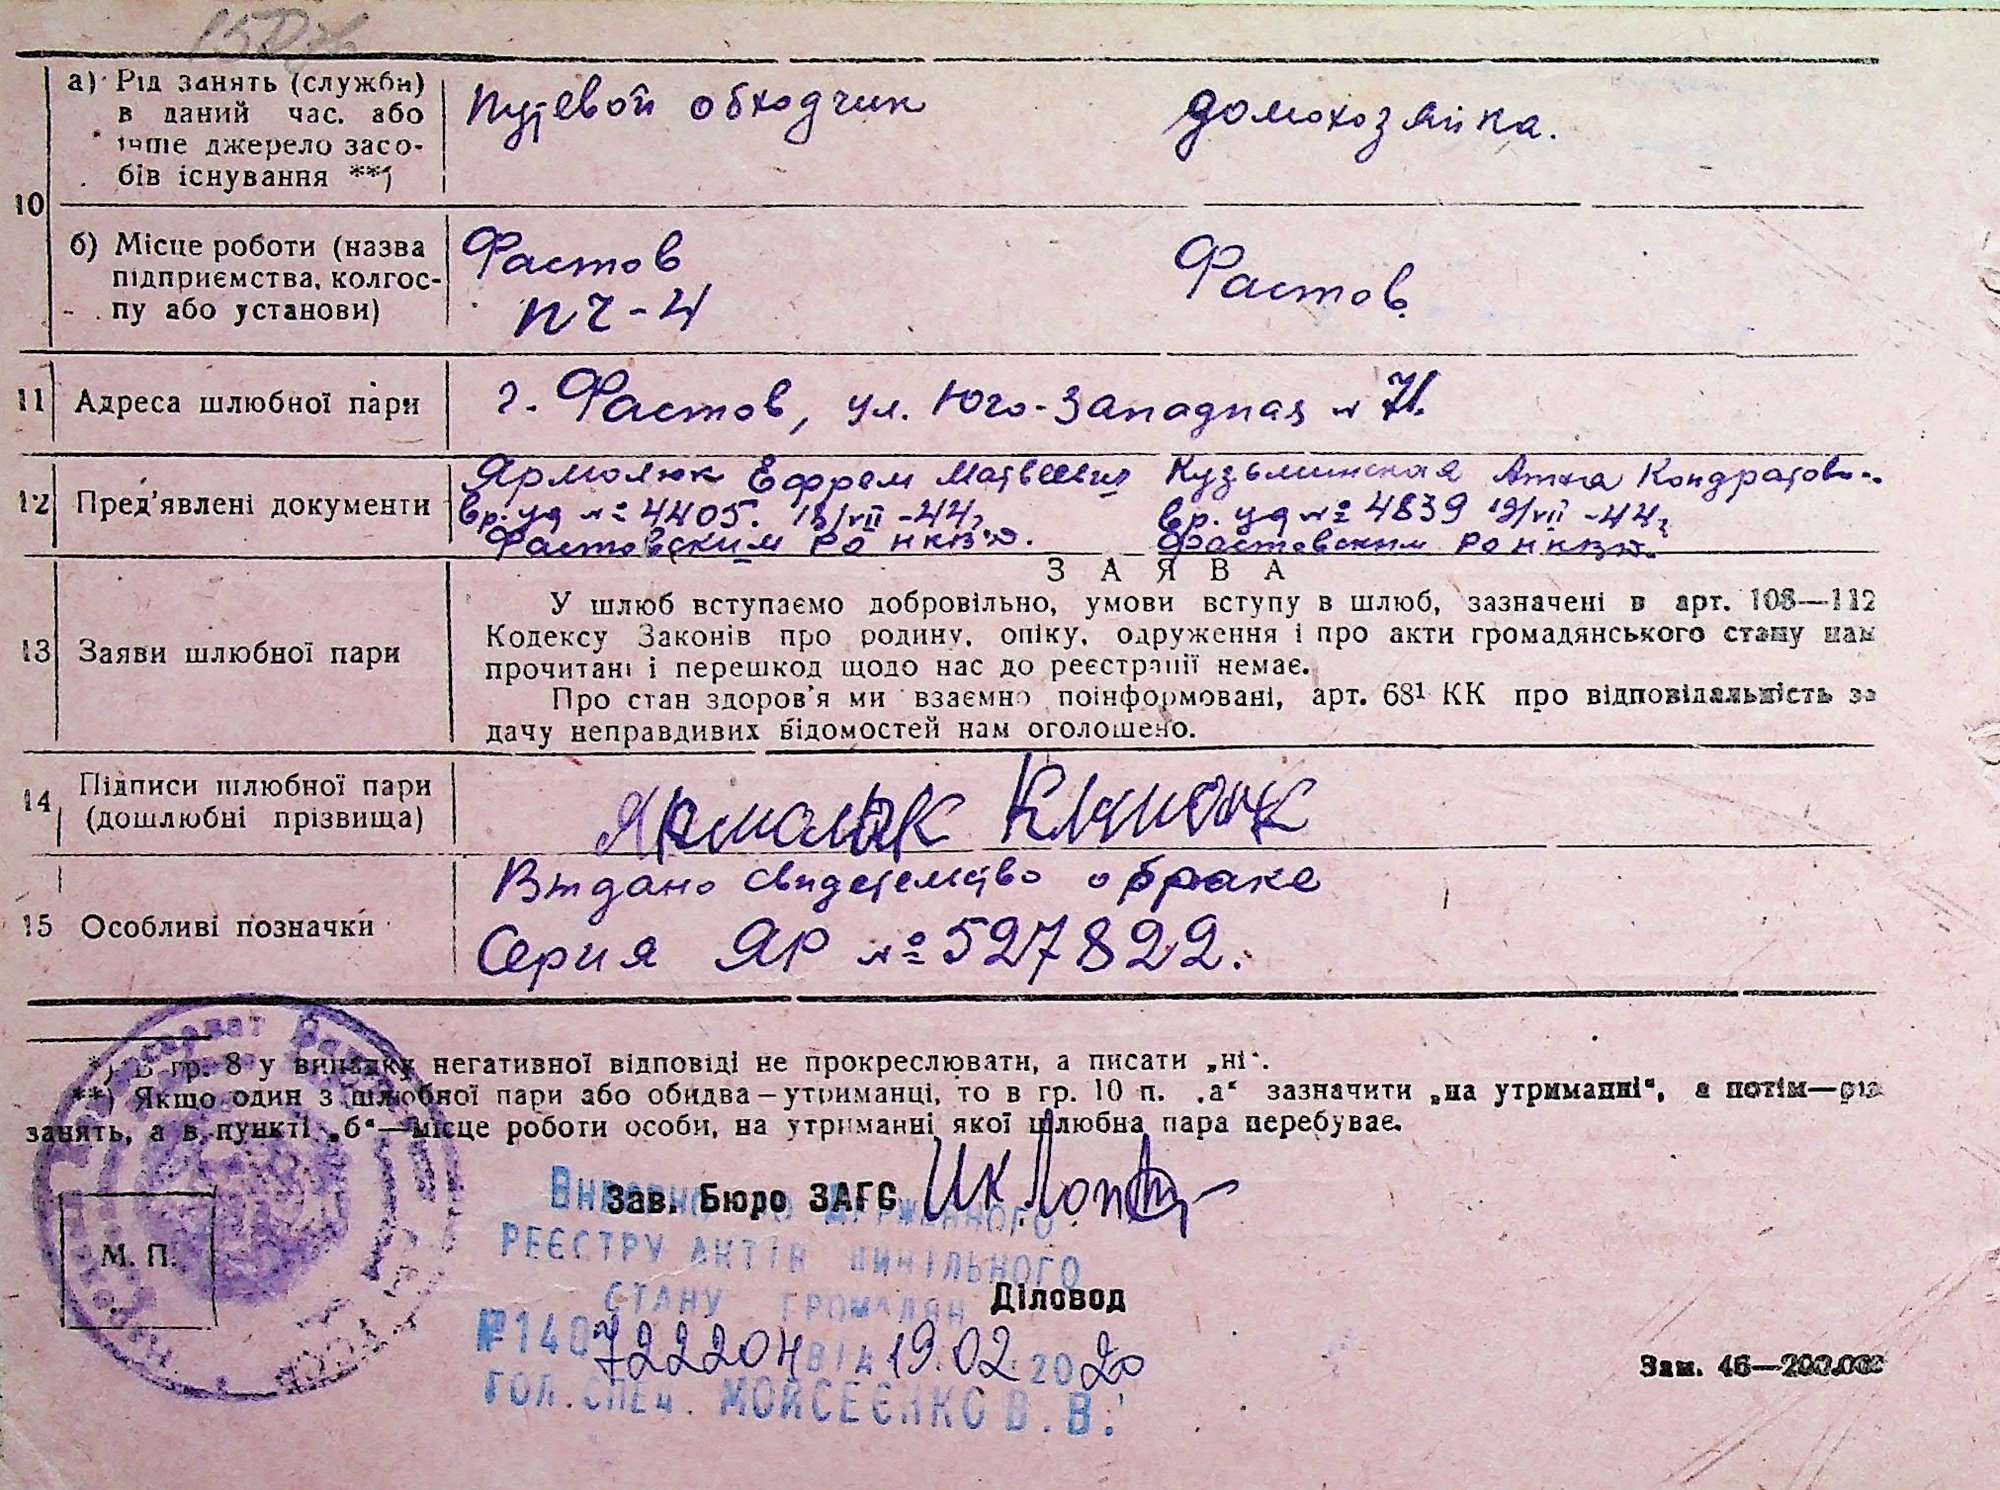 10
а) Рід занять (служби)
в даний час. або
інше джерело засо-
бів існування **)
Путевой обходчик
домохозяйка.
б) Місце роботи (назва
підприємства, колгос-
пу або установи)
Фастов
ПЧ-4
Фастов.
11 Адреса шлюбної пари
г. Фастов, ул. Юго-Западная № 71.
12 Пред'явлені документи
Ярмолюк Ефрем Матвеевич
вр. уд № 4405. 13/VII-44г
Фастовским РО НКВД.
Кузьминская Анна Кондратовн..
вр. уд № 4839 19/VII-44г
Фастовским РО НКВД.
13 Заяви шлюбної пари
ЗАЯВА
У шлюб вступаємо добровільно, умови вступу в шлюб, зазначені в арт. 108—112
Кодексу Законів про родину, опіку, одруження і про акти громадянського стану нам
прочитані і перешкод щодо нас до реєстрації немає.
Про стан здоров'я ми взаємно поінформовані, арт. 68¹ КК про відповідальність за
дачу неправдивих відомостей нам оголошено.
14 Підписи шлюбної пари
(дошлюбні прізвища)
Ярмолюк
15 Особливі позначки
Выдано свидетельство о браке
Серия ЯР № 527822.
*) В гр. 8 у випадку негативної відповіді не прокреслювати, а писати „ні“.
**) Якщо один з шлюбної пари або обидва—утриманці, то в гр. 10 п. „а“ зазначити „на утриманні“, а потім—рід
занять, а в пункті „б“—місце роботи особи, на утриманні якої шлюбна пара перебуває.
М. П.
Зав. Бюро ЗАГС
ДЕРЖАВНОГО
РЕЄСТРУ АКТІВ ЦИВІЛЬНОГО
СТАНУ ГРОМАДЯН
Діловод
№140 722204 ВІД 19.02.2020
ГОЛ. СПЕЦ. МОЙСЕЄНКО В. В.
Зам. 46—200.000